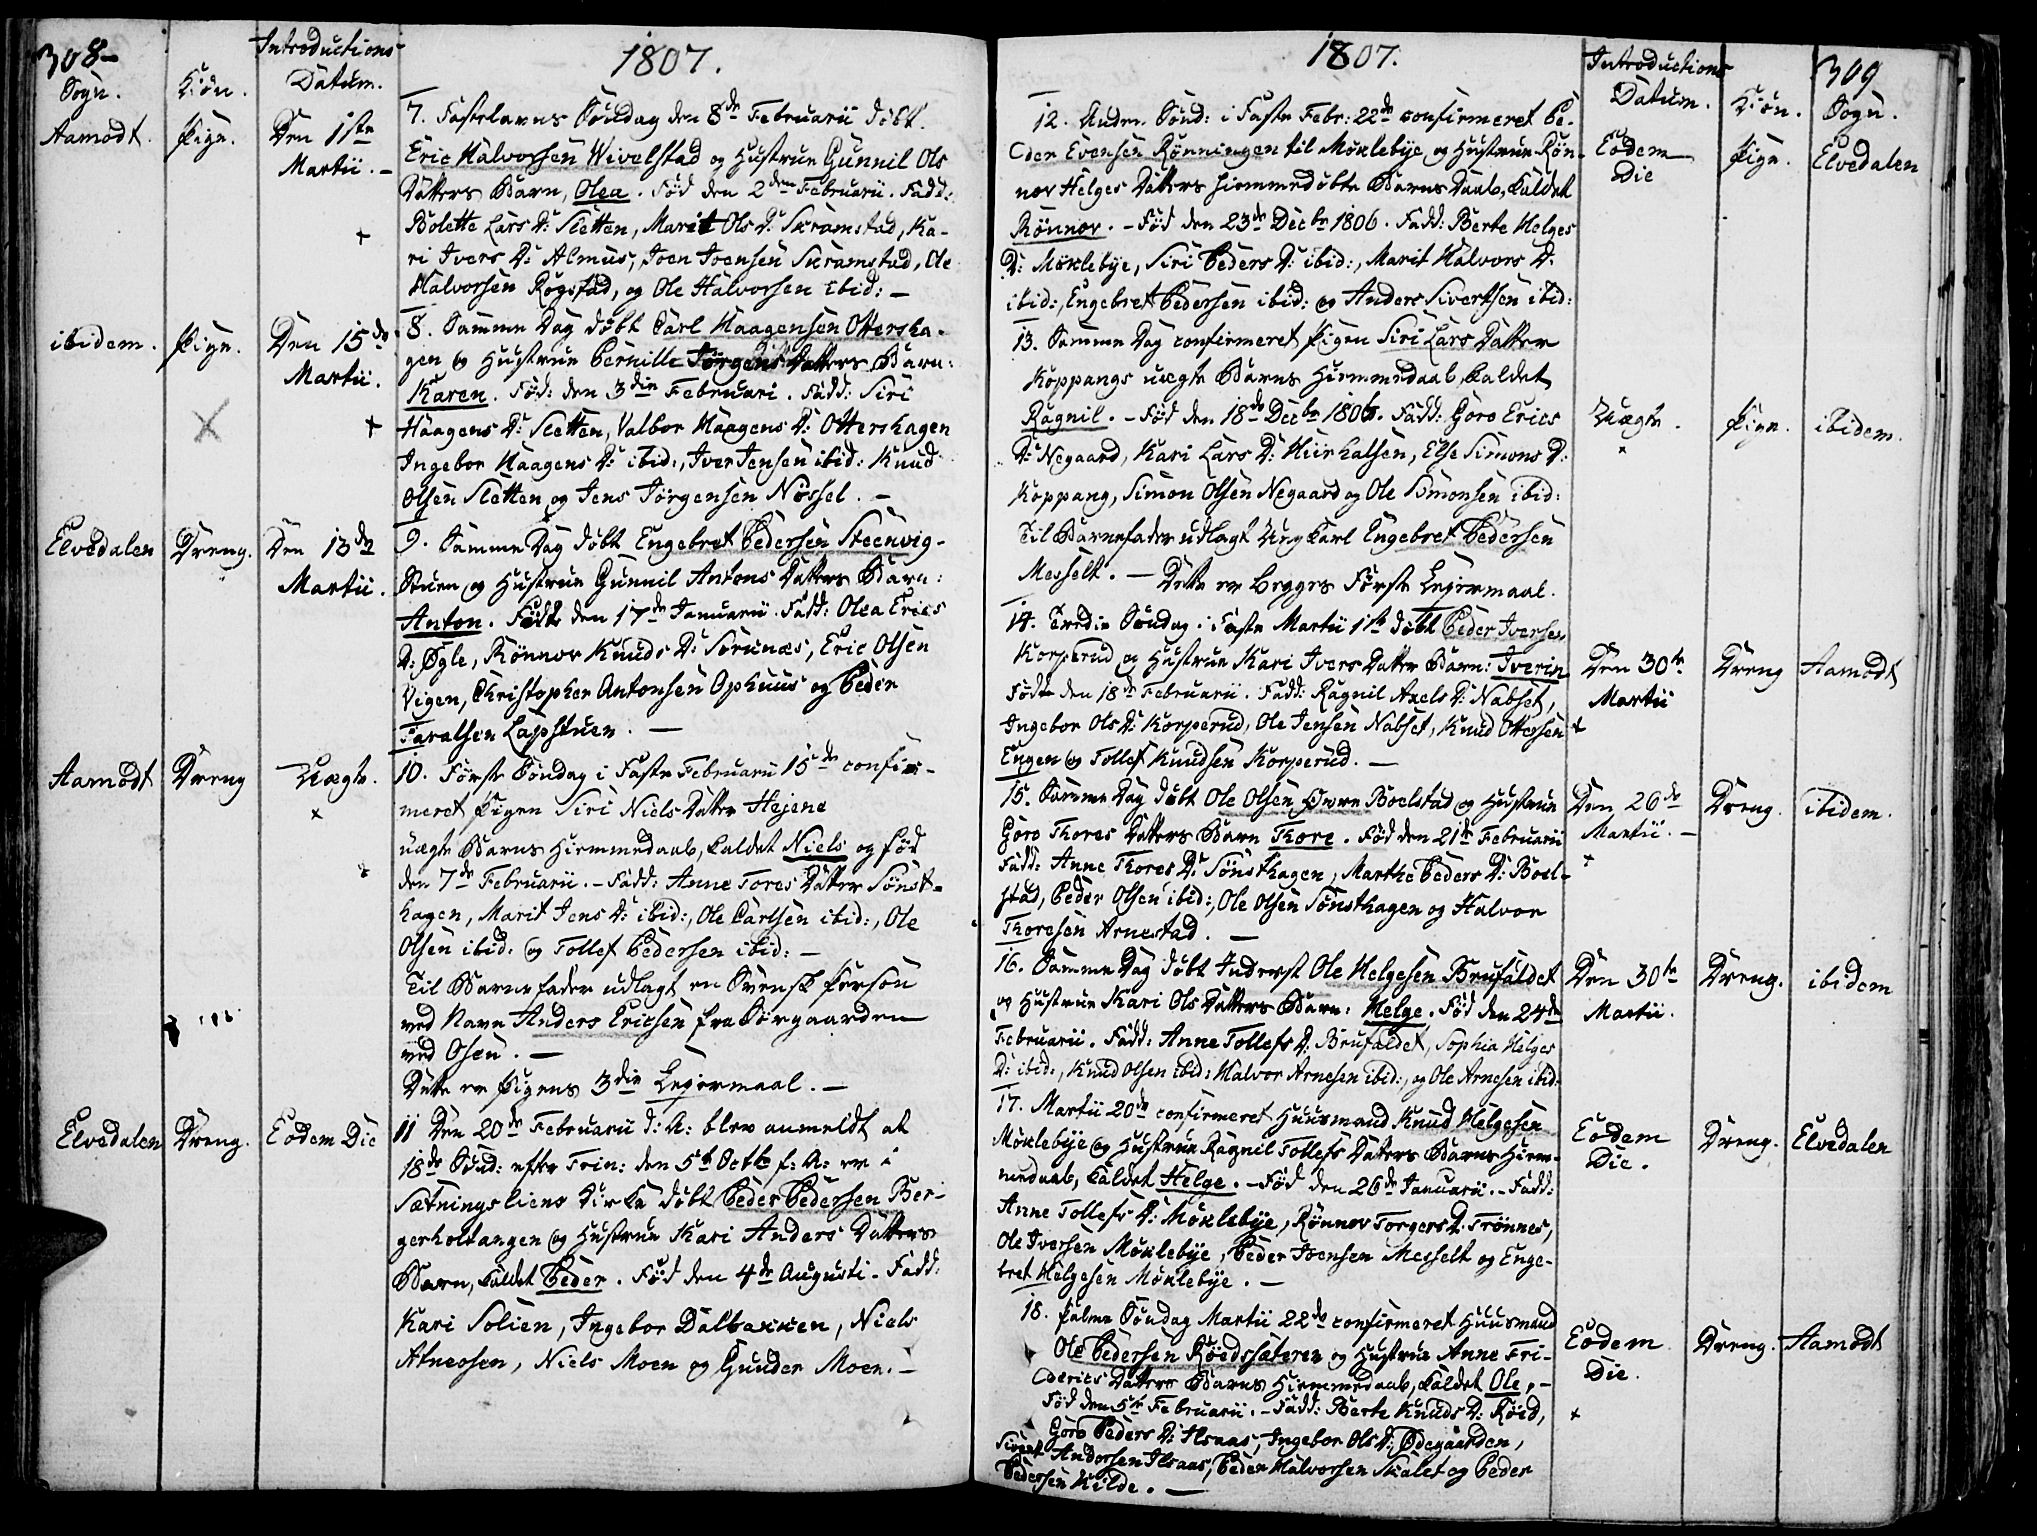 308
Introductions
1807.
Sogn.
Kiøn.
Datum.
Aamodt.
Pige.
Den 1ste
Martii.
7. Fastelavns Søndag den 8de Februarii døbt
Eric Halvorsen Wivelstad og Hustrue Gunnil Ols
Datters Barn, Olea. Fød den 2den Februarii. Fadd:
Bolette Lars D: Sletten, Marit Ols D: Skramstad, Ka-
ri Ivers D: Almus, Joen Joensen Skramstad, Ole
Halvorsen Rogstad, og Ole Halvorsen ibid: —
ibidem.
Pige.
Den 15de
Martii.
8. Samme Dag døbt Carl Haagensen Ottersha-
gen og Hustrue Pernille Jørgens Datters Barn:
Karen. Fød: den 3die Februari. Fadd: Siri
Haagens D: Sletten, Valbor Haagens D: Ottershagen
Ingebor Haagens D: ibid:, Iver Jensen ibid: Knud
Olsen Sletten og Jens Jørgensen Nøssel. —
Elvedalen
Dreng.
Den 13de
Martii.
9. Samme Dag døbt Engebret Pedersen Steenvig-
Stuen og Hustrue Gunnil Antons Datters Barn:
Anton. Født den 17de Januarii. Fadd: Olea Erics
D: Øgle, Rønnov Knuds D: Sorunæs, Eric Olsen
Vigen, Christopher Antonsen Ophuus og Peder
Taralsen Lapstuen. —
Aamodt
Dreng
Uægte.
10. Første Søndag i Faste Februarii 15de confir-
meret Pigen Siri Niels Datter Hejene
uægte Barns Hiemmedaab, kaldet Niels og fød
den 7de Februarii. - Fadd: Anne Tores Datter Sønst-
hagen, Marit Jens D: ibid:, Ole Carlsen ibid:, Ole
Olsen ibid: og Tollef Pedersen ibid: —
Til Barnefader udlagt en Svensk Person
ved Navn Anders Ericsen fra Sørgaarden
ved Osen. —
Dette er Pigens 3die Lejermaal. —
Elvedalen
Dreng.
Eodem Die
11 Den 20de Februarii d: A: blev anmeldt at
18de Sønd: efter Trin: den 5te Octb f: A: er i
Sætningsliens Kirke døbt Peder Pedersen Ber-
gerholtangen og Hustrue Kari Anders Datters
Barn, kaldet Peder. Fød den 4de Augusti. Fadd:
Kari Solien, Ingebor Dalbakken, Niels
Atneosen, Niels Moen og Gunder Moen. —
1807.
Introductions
309
Datum.
Kiøn.
Sogn.
12. Anden Sønd: i Faste Febr: 22de confirmeret Pe-
der Evensen Rønningen til Møklebye og Hustrue Røn-
nov Helges Datters hiemmedøbte Barns Daab, kaldet
Rønnov. - Fød den 23de Decbr 1806. Fadd: Berte Helges
D: Møklebye, Siri Peders D: ibid:, Marit Halvors D:
ibid:, Engebret Pedersen ibid: og Anders Sivertsen ibid:
Eodem
Die
Pige.
Elvedalen
13. Samme Dag confirmeret Pigen Siri Lars Datter
Koppangs uægte Barns Hiemmedaab, kaldet
Ragnil. - Fød den 18de Decbr 1806. Fadd: Goro Erics
D: Negaard, Kari Lars D: Hiirhalsen, Else Simons D:
Koppang, Simon Olsen Negaard og Ole Simonsen ibid:
Til Barnefader udlagt Ung Karl Engebret Pedersen
Messelt. — Dette er Begges Første Lejermaal.
Uægte.
Pige.
ibidem.
14. Tredie Søndag i Faste Martii 1ste døbt Peder Iversen
Korperud og Hustrue Kari Ivers Datter Barn: Iverin
Født den 18de Februarii. Fadd: Ragnil Axels D: Nabset,
Ingebor Ols D: Korperud, Ole Jensen Nabset, Knud Ottersen
Engen og Tollef Knudsen Korperud. —
Den 30te
Martii
Dreng
Aamodt
15. Samme Dag døbt Ole Olsen Øvre Boelstad og Hustrue
Goro Thores Datters Barn Thore. Fød den 21de Februarii
Fadd: Anne Thores D: Sønsthagen, Marthe Peders D: Boel-
stad, Peder Olsen ibid:, Ole Olsen Sønsthagen og Halvor
Thoresen Arnestad. —
Den 26de
Martii. —
Dreng.
ibidem.
16. Samme Dag døbt Inderst Ole Helgesen Brufaldet
og Hustrue Kari Ols Datters Barn: Helge. Fød den 24de
Februarii. Fadd: Anne Tollefs D: Brufaldet, Sophia Helges
D: ibid:, Knud Olsen ibid: Halvor Arnesen ibid:, og Ole Arnesen ibid:
Den 30te
Martii.
Dreng.
ibidem
17. Martii 20de confirmeret Huusmand Knud Helgesen
Møklebye og Hustrue Ragnil Tollefs Datters Barns Hiem-
medaab, kaldet Helge. - Fød den 26de Januarii. - Fadd:
Anne Tollefs D: Møklebye, Rønnov Torgers D: Trønnes,
Ole Iversen Møklebye, Peder Joensen Messelt og Enge-
bret Helgesen Møklebye. —
Eodem
Die.
Dreng.
Elvedalen
18. Palme Søndag Martii 22de confirmeret Huusmand
Ole Pedersen Røedssæteren og Hustrue Anne Fri-
derics Datters Barns Hiemmedaab, kaldet Ole, -
Fød den 5te Februarii. - Fadd: Berte Knuds D: Røed,
Goro Peders D: Ilsaas, Ingebor Ols D: Ødegaarden,
Sivert Andersen Ilsaas, Peder Halvorsen Skalet og Peder
Pedersen Kilde. —
Eodem
Die.
Dreng.
Aamodt